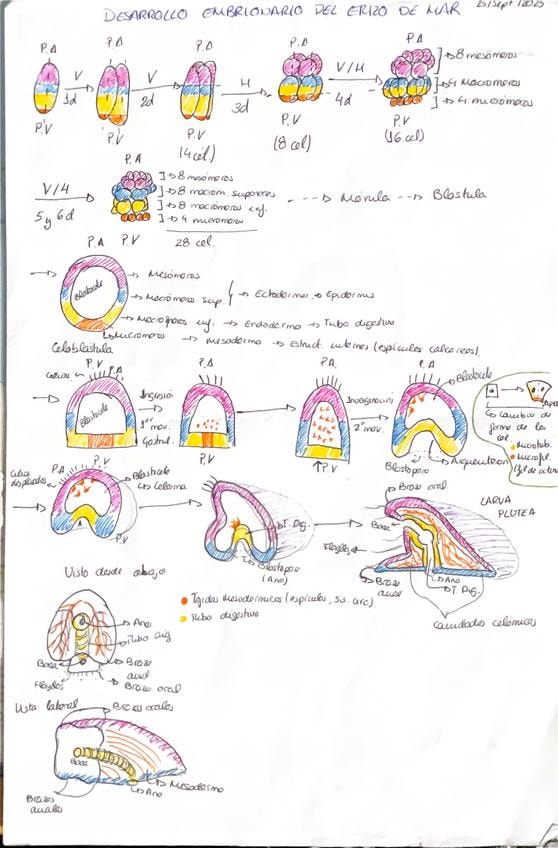 DESARROLLO EMBRIONARIO DEL ERIZO DE MAR
25/Sept/2025
P.A P.A P.A P.A P.A
V 1d V 2d H 3d V/H 4d
→ 8 mesómeros
→ 4 Macrómeros
→ 4 micrómeros
P.V P.V P.V P.V P.V
(4 cél) (8 cel) (16 cel)
P.A
V/H
5 y 6d
→ 8 mesómeros
→ 8 macrom. superiores
→ 8 macrómeros inf.
→ 4 micrómeros
28 cel.
P.V
---→ Mórula ---→ Blástula
P.A
Blastocele
→ Mesómeros
→ Macrómeros Sup. → Ectodermo → Epidermis
→ Macrómeros inf. → Endodermo → Tubo digestivo
→ Micrómeros → Mesodermo → Estruct. internas (espículas calcáreas).
Celoblástula
P.V
Cilios P.A P.A P.A
Blastocele
Ingresión
1er mov.
Gastrul.
Invaginación
2º mov.
→ Blastocele
P.V P.V ↑P.V
Blastoporo
Arquenteron
Cambio de
forma de la
cel.
Microtub.
Microfil.
P.A
→ Blastocele
→ Celoma
P.V
T. Dig.
Blastoporo
(Ano)
Brazo oral
LARVA
PLUTEA
Boca
Flagelos
Brazo
anal
Ano
T. Dig.
Cavidades celomicas
Visto desde abajo
Tejidos Mesodérmicos (espículas, Sis. circ)
Tubo digestivo
Ano
Tubo Dig
Boca
Brazo
anal
Flagelos
Brazo oral
Vista lateral
Brazos orales
Boca
Mesodermo
Ano
Brazos
anales